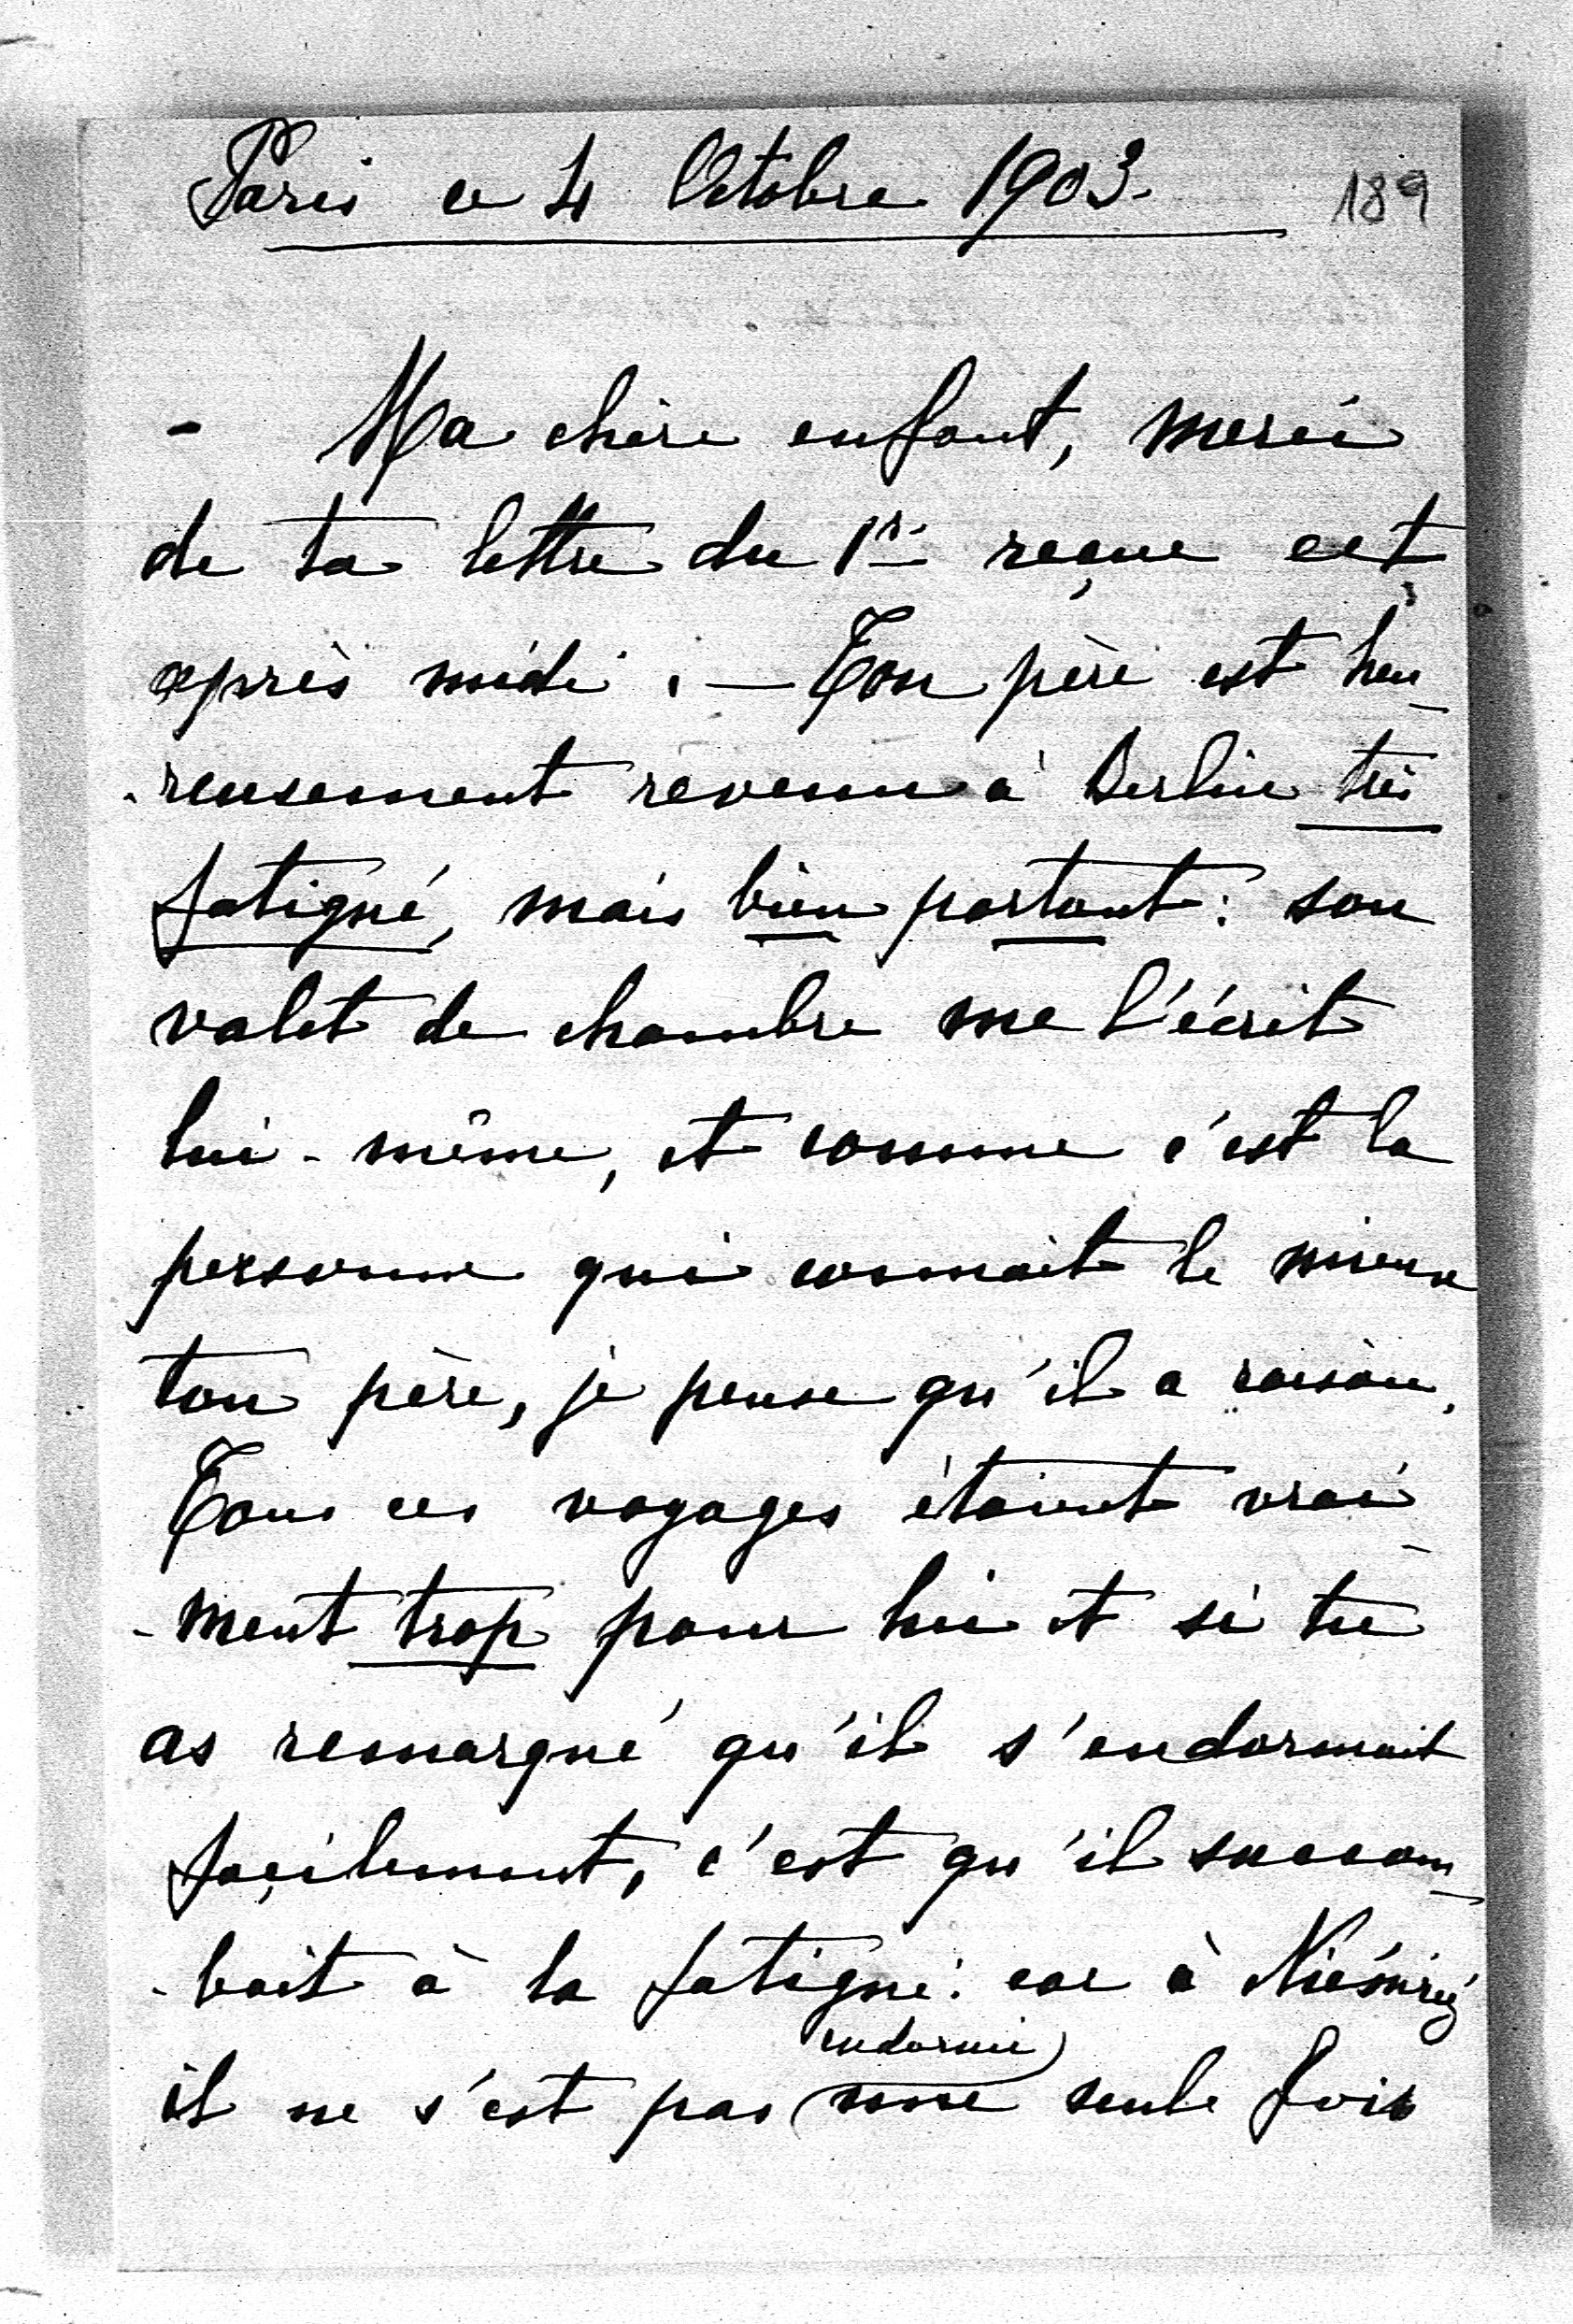 Paris ce 4 Octobre 1903. 189
- Ma chère enfant, merci
de ta lettre du 1er reçue cet
après midi. — Ton père est heu-
-reusement revenu à Berlin très
fatigué, mais bien portant: son
valet de chambre me l'écrit
lui-même, et comme c'est la
personne qui connait le mieux
ton père, je pense qu'il a raison.
Tous ces voyages étaient vrai-
-ment trop pour lui et si tu
as remarqué qu'il s'endormait
façilement, c'est qu'il succom-
-bait à la fatigue: car à
endormi
il ne s'est pas une seule fois